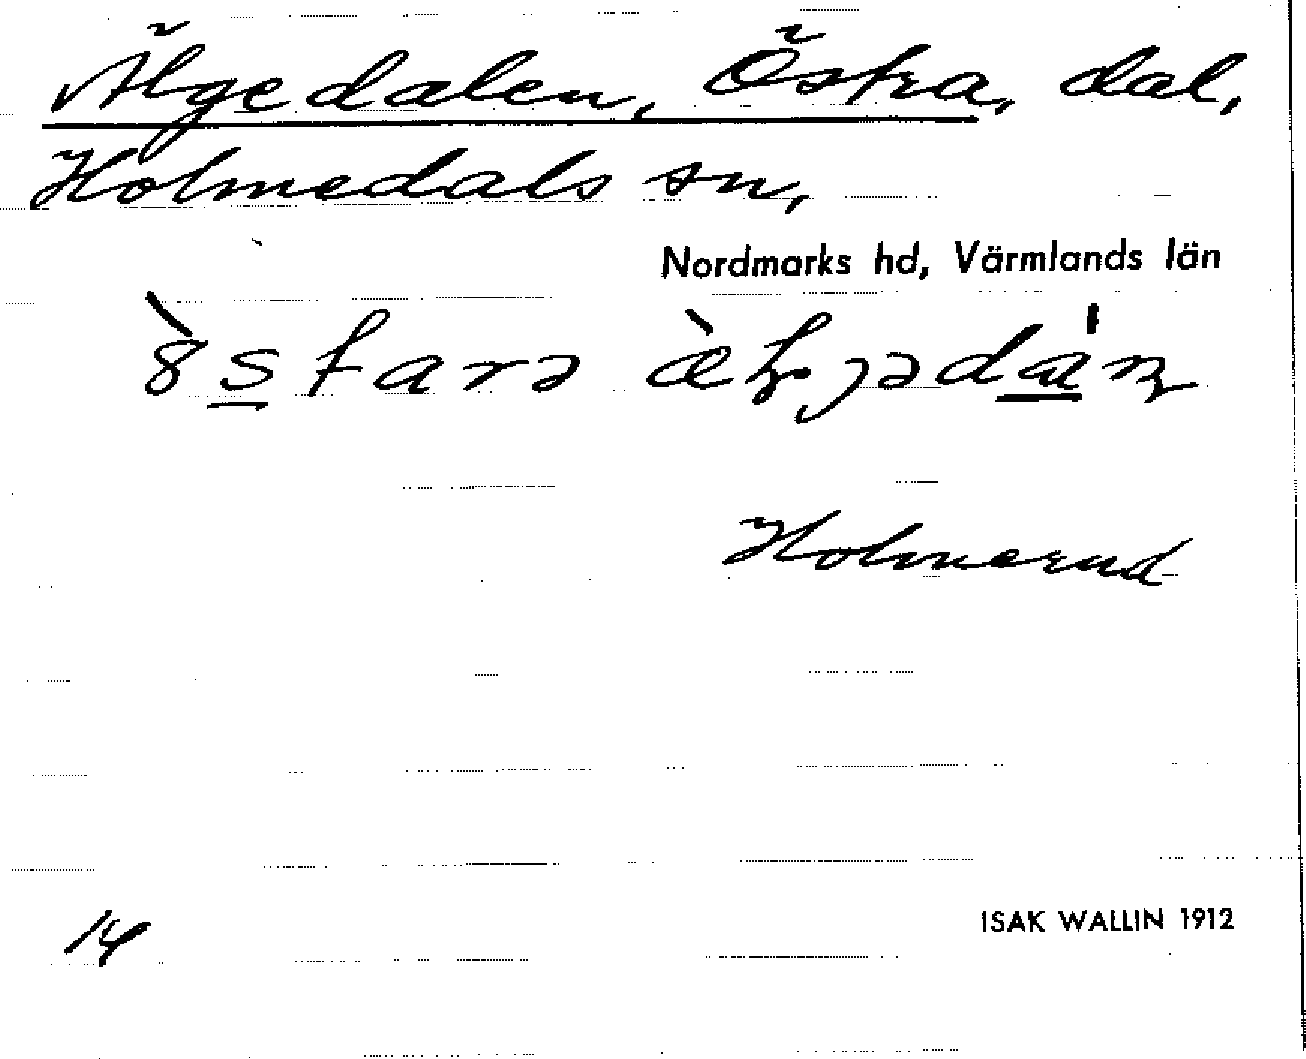 Älgedalen, Östra, dal,
Holmedals sn,
Nordmarks hd, Värmlands län
Holmerud
14
ISAK WALLIN 1912